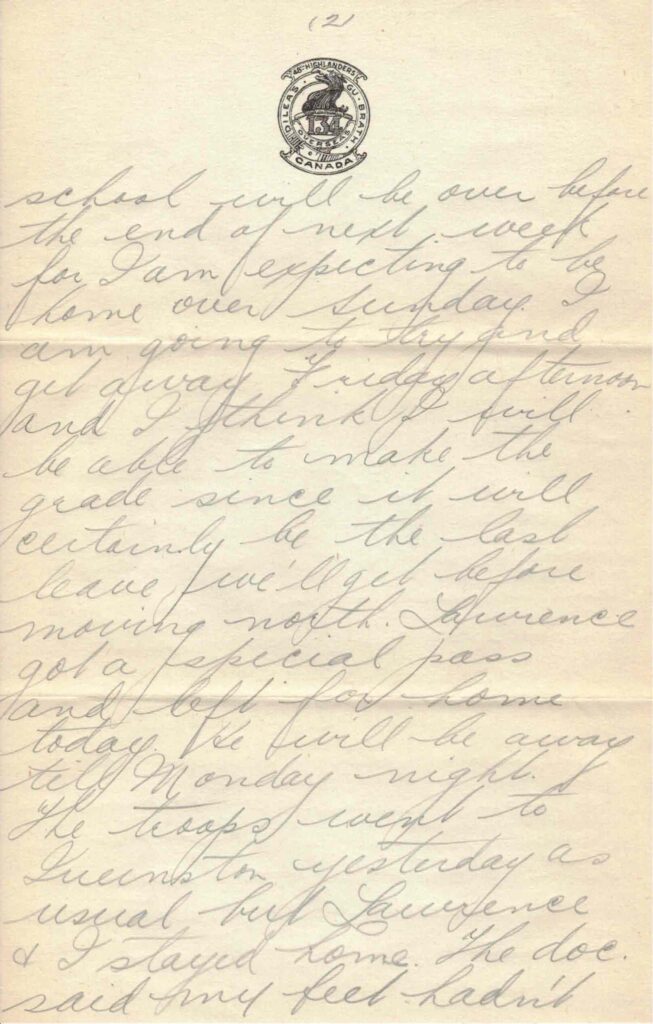 (2)
48TH HIGHLANDERS
DILEAS GU BRATH
134
OVERSEAS
CANADA
school will be over before
the end of next week
for I am expecting to be
home over Sunday. I
am going to try and
get away Friday afternoon
and I think I will
be able to make the
grade since it will
certainly be the last
leave we'll get before
moving north. Lawrence
got a special pass
and left for home
today. He will be away
till Monday night.
The troops went to
Queenston yesterday as
usual but Lawrence
& I stayed home. The doc.
said my feet hadn't